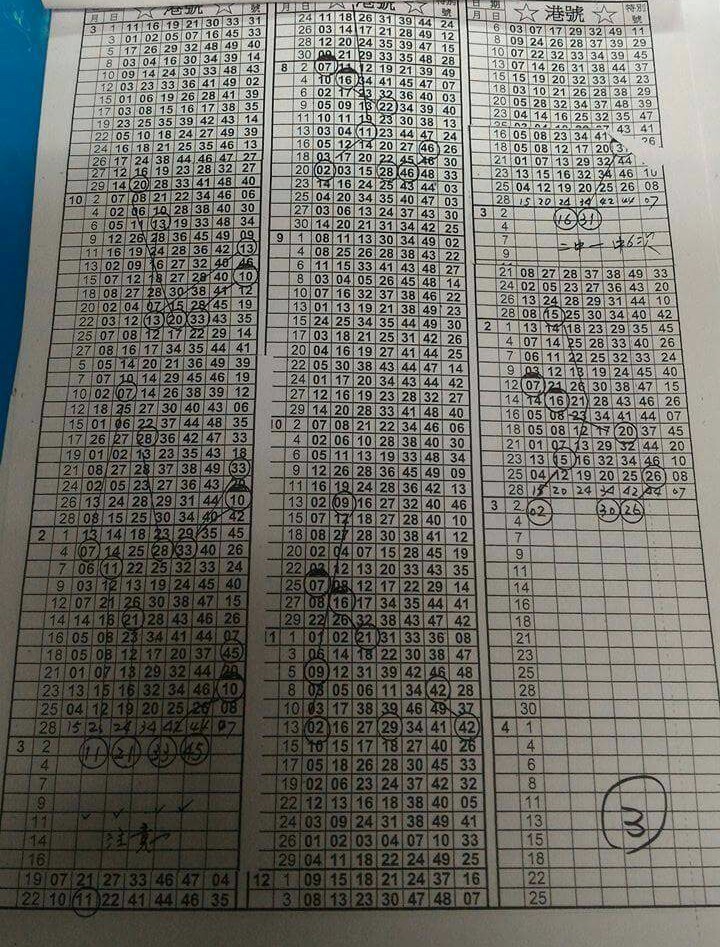 月 日 ☆ 港號 ☆ 號
3 1 11 16 19 21 30 33 31
3 01 02 05 07 16 45 33
5 17 26 29 32 48 49 40
8 03 04 16 30 34 39 14
10 09 14 24 30 33 48 43
12 03 23 33 36 41 49 02
15 01 06 19 26 28 41 39
17 03 08 15 16 17 38 35
19 23 25 35 39 42 43 14
22 05 10 18 24 27 49 39
24 16 18 21 25 35 46 13
26 17 24 38 44 46 47 27
27 12 16 19 23 28 32 27
29 14 20 28 33 41 48 40
10 2 07 08 21 22 34 46 06
4 02 06 10 28 38 40 30
6 05 11 13 19 33 48 34
9 12 26 28 36 45 49 09
11 16 19 24 28 36 42 13
13 02 09 16 27 32 40 46
15 07 12 18 27 28 40 10
18 08 27 28 30 38 41 12
20 02 04 07 15 28 45 19
22 03 12 13 20 33 43 35
25 07 08 12 17 22 29 14
27 08 16 17 34 35 44 41
5 05 14 20 21 36 49 39
7 07 10 14 29 45 46 19
10 02 07 14 26 38 39 12
12 18 25 27 30 40 43 06
15 01 06 22 37 44 48 35
17 26 27 28 36 42 47 33
19 01 02 13 23 35 43 18
21 08 27 28 37 38 49 33
24 02 05 23 27 36 43 20
26 13 24 28 29 31 44 10
28 08 15 25 30 34 40 42
2 1 13 14 18 23 29 35 45
4 07 14 25 28 33 40 26
7 06 11 22 25 32 33 24
9 03 12 13 19 24 45 40
12 07 21 26 30 38 47 15
14 14 16 21 28 43 46 26
16 05 08 23 34 41 44 07
18 05 08 12 17 20 37 45
21 01 07 13 29 32 44 20
23 13 15 16 32 34 46 10
25 04 12 19 20 25 26 08
28 15 20 24 34 42 44 07
3 2 11 21 33 45
4
7
9
11
14 注意
16
19 07 21 27 33 46 47 04
22 10 11 22 41 44 46 35
24 11 18 26 31 39 44 24
26 03 14 17 21 49 49 12
28 12 20 24 35 39 47 15
30 09 21 29 33 35 48 28
8 2 07 11 12 19 21 39 49
4 10 09 34 41 45 47 07
6 02 17 23 32 36 40 03
9 05 09 13 22 34 39 40
11 10 11 19 23 30 38 13
13 03 04 11 23 44 47 24
16 05 12 14 20 27 46 26
18 03 17 20 22 45 46 30
20 02 03 15 28 46 48 33
23 14 16 24 25 43 44 03
25 04 20 34 35 40 47 03
27 03 06 13 24 37 43 30
30 04 16 18 27 41 43 45
9 1 08 11 13 30 34 49 02
4 08 25 26 28 38 39 23
6 11 15 33 41 43 48 27
8 03 04 05 26 45 48 14
10 07 16 32 37 38 46 22
13 01 13 19 21 38 49 23
15 24 25 34 35 44 49 30
17 03 18 21 25 31 42 26
20 04 16 19 27 41 44 25
22 05 30 38 43 44 47 24
24 01 17 20 34 43 44 42
27 12 16 19 23 28 32 27
29 14 20 28 33 41 48 40
10 2 07 08 21 22 34 46 06
4 02 06 10 28 38 40 30
6 05 11 13 19 33 48 34
9 12 26 28 36 45 49 09
11 16 19 24 28 36 42 13
13 02 09 16 27 32 40 46
15 07 12 18 27 28 40 10
18 08 27 28 30 38 41 12
20 02 04 07 15 28 45 19
22 03 12 13 20 33 43 35
25 07 08 12 17 22 29 14
27 08 16 17 34 35 44 41
29 22 26 32 38 43 47 42
11 1 01 02 21 31 33 36 08
3 06 14 18 22 30 38 47
5 09 12 31 39 42 46 48
8 03 05 06 11 34 42 28
10 03 17 38 39 46 49 37
13 02 16 27 29 34 41 42
15 10 15 17 18 27 40 26
17 05 18 26 28 30 45 33
19 02 06 23 24 37 42 32
22 12 13 16 18 38 40 05
24 03 09 24 31 38 49 41
26 01 02 03 04 07 10 33
29 04 11 18 22 24 49 25
12 1 09 15 18 21 24 37 16
3 08 13 23 30 47 48 07
日 期 月 ☆ 港號 ☆ 特別號
6 03 07 17 29 32 49 11
8 09 24 26 28 37 39 29
10 07 22 32 33 34 39 45
13 07 14 26 31 38 44 37
15 15 19 20 32 33 34 23
18 03 10 21 26 28 40 38
20 05 28 32 34 37 48 39
23 04 14 16 25 32 35 47
16 05 08 23 34 41
18 05 08 12 17 20
21 01 07 13 29 32 44
23 13 15 16 32 34 46 10
25 04 12 19 20 25 26 08
28 15 20 24 34 42 44 07
3 2 16 31
4
7 二中一
9
21 08 27 28 37 38 49 33
24 02 05 23 27 36 43 20
26 13 24 28 29 31 44 10
28 08 15 25 30 34 40 42
2 1 13 14 18 23 29 35 45
4 07 14 25 28 33 40 26
7 06 11 22 25 32 33 24
9 03 12 13 19 24 45 40
12 07 21 26 30 38 47 15
14 14 16 21 28 43 46 26
16 05 08 23 34 41 44 07
18 05 08 12 17 20 37 45
21 01 07 13 29 32 44 20
23 13 15 16 32 34 46 10
25 04 12 19 20 25 26 08
28 15 20 24 34 42 44 07
3 2 02 30 26
4
7
9
11
14
16
18
21
23
25
28
30
4 1
4
6
8
11
13
15
18
22
25
3